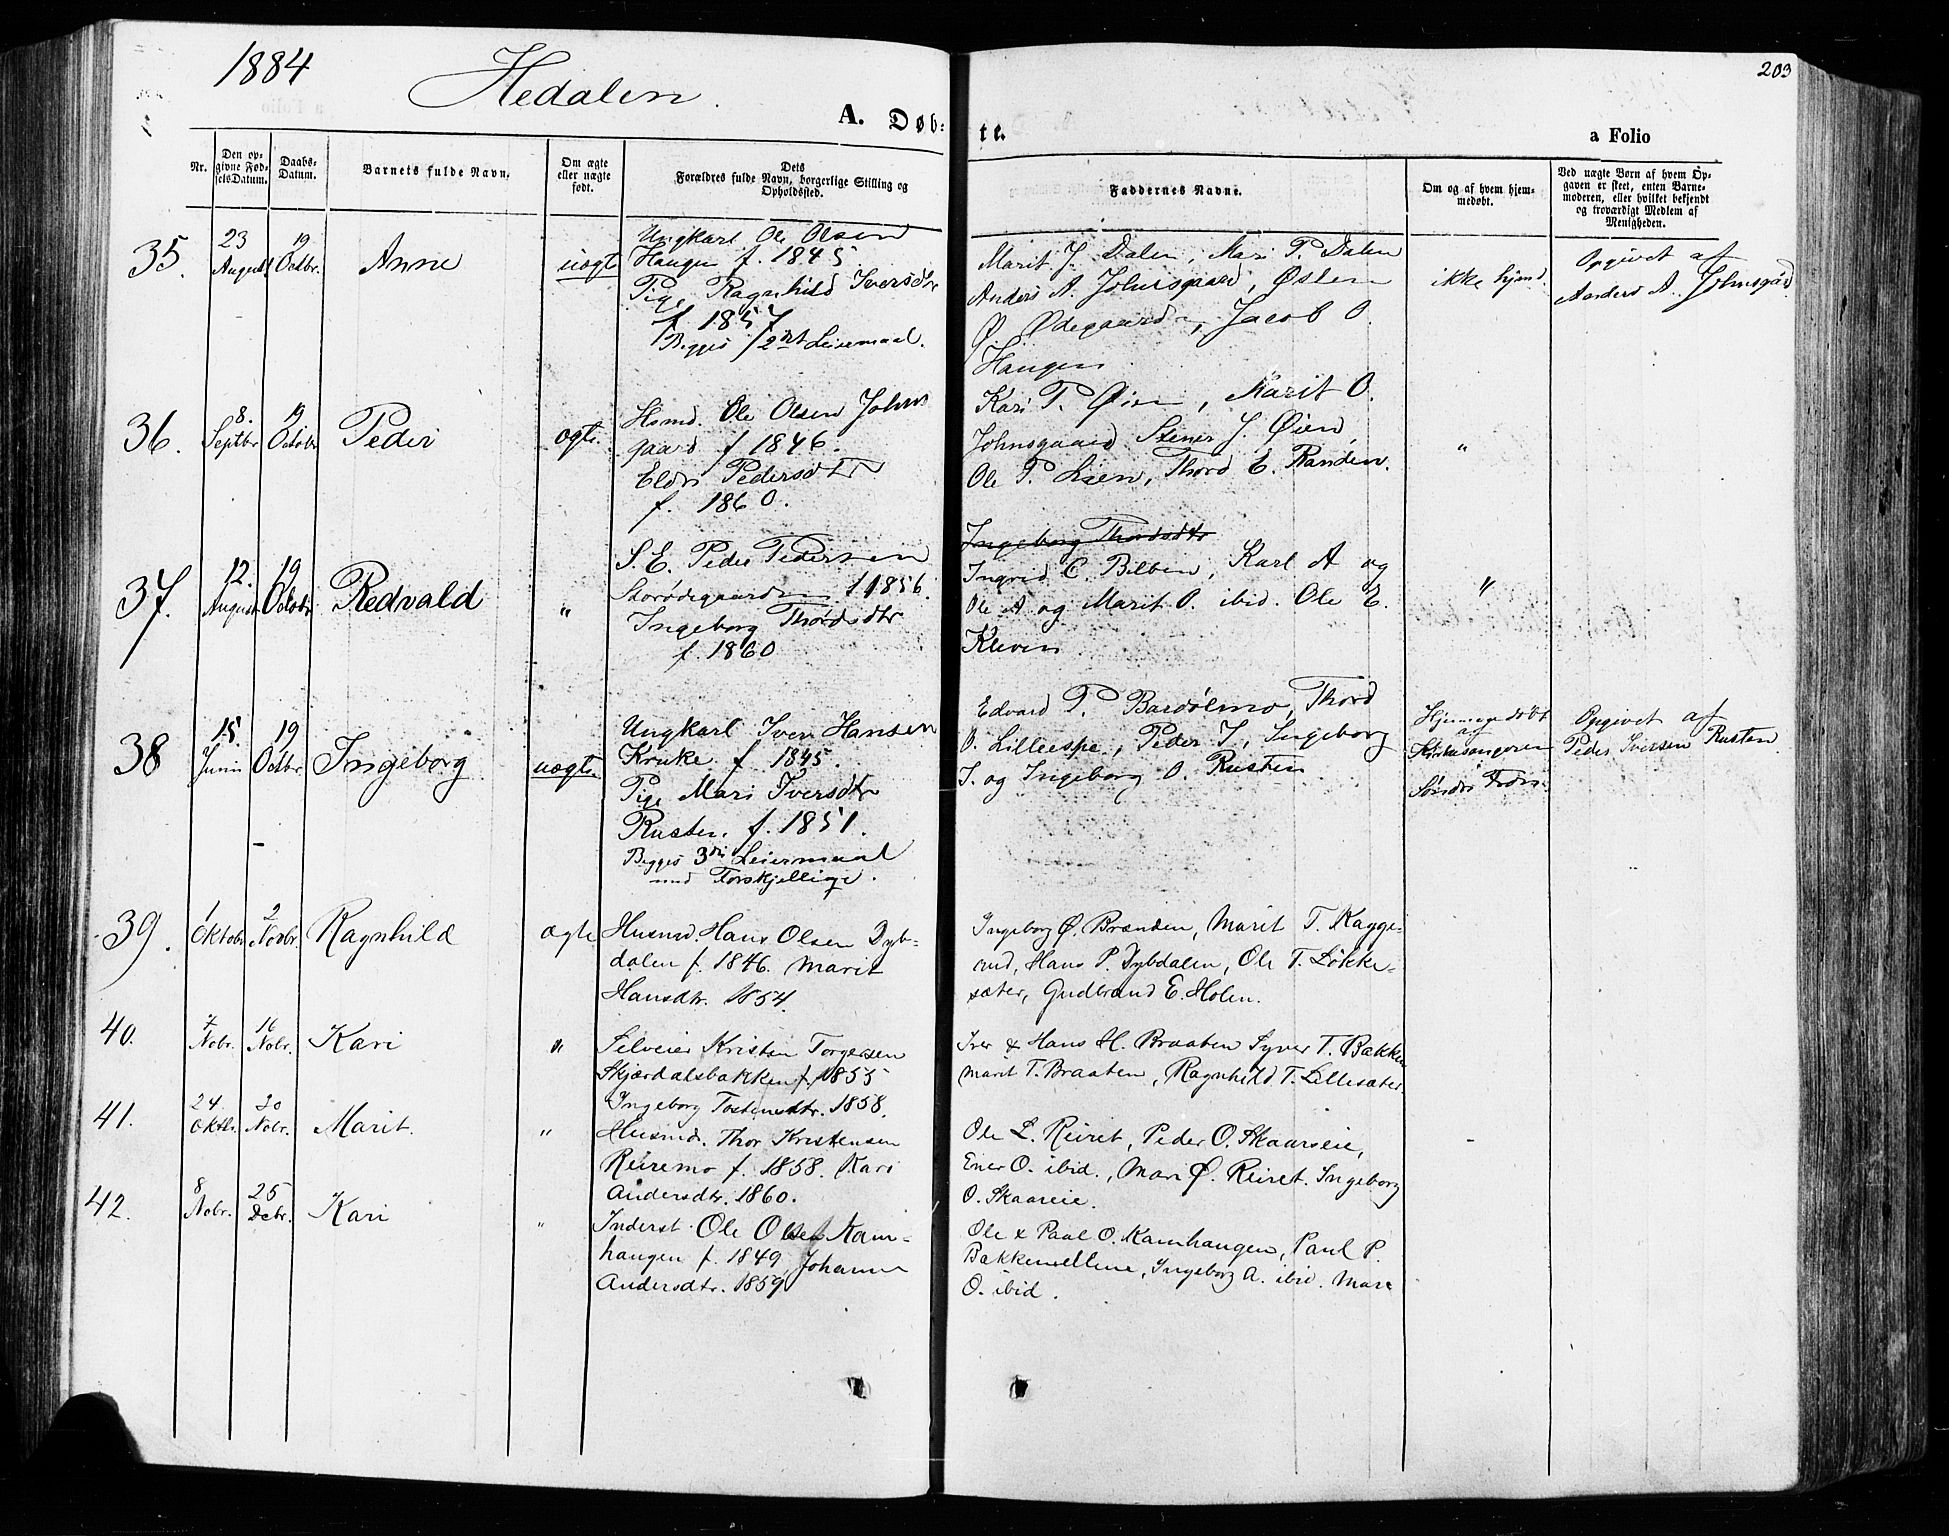 1884
Hedalen.
203
A. Døb:
te.
a Folio
Nr.
Den op-
givne Fød-
selsDatum.
Daabs-
Datum.
Barnets fulde Navn.
Om ægte
eller uægte
født.
Dets
Forældres fulde Navn, borgerlige Stilling og
Opholdssted.
Faddernes Navne.
Om og af hvem hjem-
medøbt.
Ved uægte Børn af hvem Op-
gaven er skeet, enten Barne-
moderen, eller hvilket bekjendt
og troværdigt Medlem af
Menigheden.
35.
23
August
19
Octbr.
Anne
uægte
Ungkarl Ole Olsen
Haugen f. 1845.
Pige Ragnhild Iversdtr
f. 1857
Begges 2det Leiermaal.
Marit J. Dalen, Mari P. Dalen
Anders A. Johnsgaard, Østen
Ø. Ødegaarden, Jacob O.
Haugen
ikke hjemd.
Opgivet af
Anders A. Johnsgård
36.
8.
Septbr
19
Octobr
Peder
ægte.
Hsmd. Ole Olsen Johns
gaard f 1846.
Eldri Pedersdtr
f. 1860.
Kari T. Øien, Marit O.
Johnsgaard Stener J. Øien
Ole P. Lien, Thord E. Randen.
"
37.
12.
August
19
Octobr
Redvald
"
S. E. Peder Pedersen
Storødegaarden f 1856.
Ingeborg Thordsdtr
f. 1860
Ingeborg Thordsdtr
Ingrid C. Bilben, Karl A og
Ole A og Marit O. ibid. Ole E.
Kleven
"
38
15.
Juni
19
Octbr.
Ingeborg
uægte
Ungkarl Iver Hansen
Kruke f 1845.
Pige Mari Iversdtr
Rusten. f. 1851.
Begges 3die Leiermaal
med Forskjellige.
Edvard P. Bardølmo, Thord
O. Lilleespe, Peder I, Ingeborg
I. og Ingeborg O. Rusten
Hjemmedøbt
af
Kirkesangeren
Søndre Fron.
Opgivet af
Peder Iversen Rusten
39.
1
Oktobr
2
Novbr.
Ragnhild
ægte
Husmd. Hans Olsen Dyb-
dalen f. 1846. Marit
Hansdtr. 1854.
Ingeborg Ø. Brænden, Marit T. Kagge-
rud, Hans P. Dybdalen, Ole T. Løkke-
sæter, Gudbrand E. Holen.
40.
7
Nobr.
16
Nobr.
Kari
"
Selveier Kristen Torgersen
Skjærdalsbakken f. 1855
Ingeborg Tostensdtr. 1858.
Iver & Hans H. Braaten Syver T. Bakken
Marit T. Braaten, Ragnhild T. Lillesæter.
41.
24
Oktbr.
30
Nobr.
Marit.
"
Husmd. Thor Kristensen
Reiremo f. 1858. Kari
Andersdtr. 1860.
Ole L. Reiret, Peder O. Skaareie,
Ener O. ibid., Mari Ø. Reiret. Ingeborg
O. Skaareie.
42.
8
Nobr.
25
Debr.
Kari
"
Inderst Ole Olsen Kam-
haugen f. 1849, Johanne
Andersdtr. 1859
Ole & Paul O. Kamhaugen, Paul P.
Bakkemellene, Ingeborg A. ibid. Mari
O. ibid.